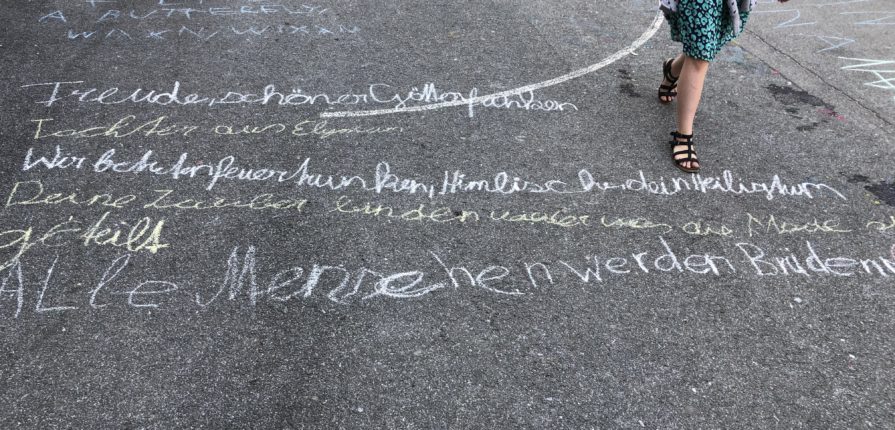 A BUTTERFLY
Freude, schöner Götterfunken
Tochter aus Elysium
Wir betreten feuertrunken, Himlische, dein Heiligtum
Deine Zauber binden wieder was die Mode
geteilt
Alle Menschen werden Brüder